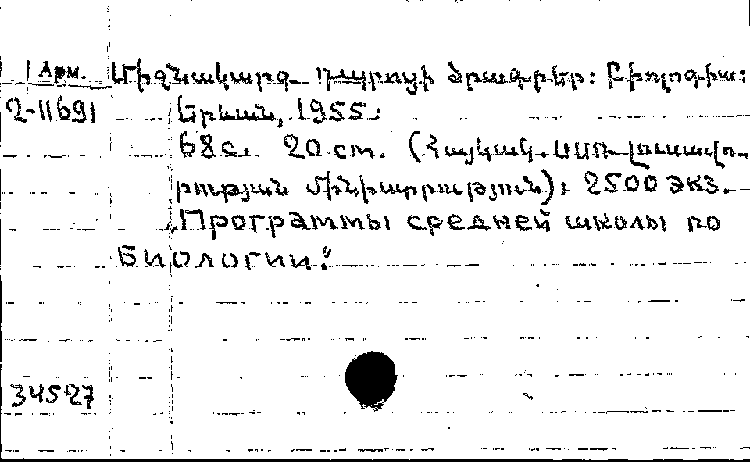 Арм. Միջնակարգ դպրոցի ծրագրեր: Բիոլոգիա:
2-11691 Երևան, 1955.
68 с. 20 cm. (Հայկակ. ՍՍՌ լուսավո-
րության մինիստրություն): 2500 экз.
„Программы средней школы по
биологии."
34527